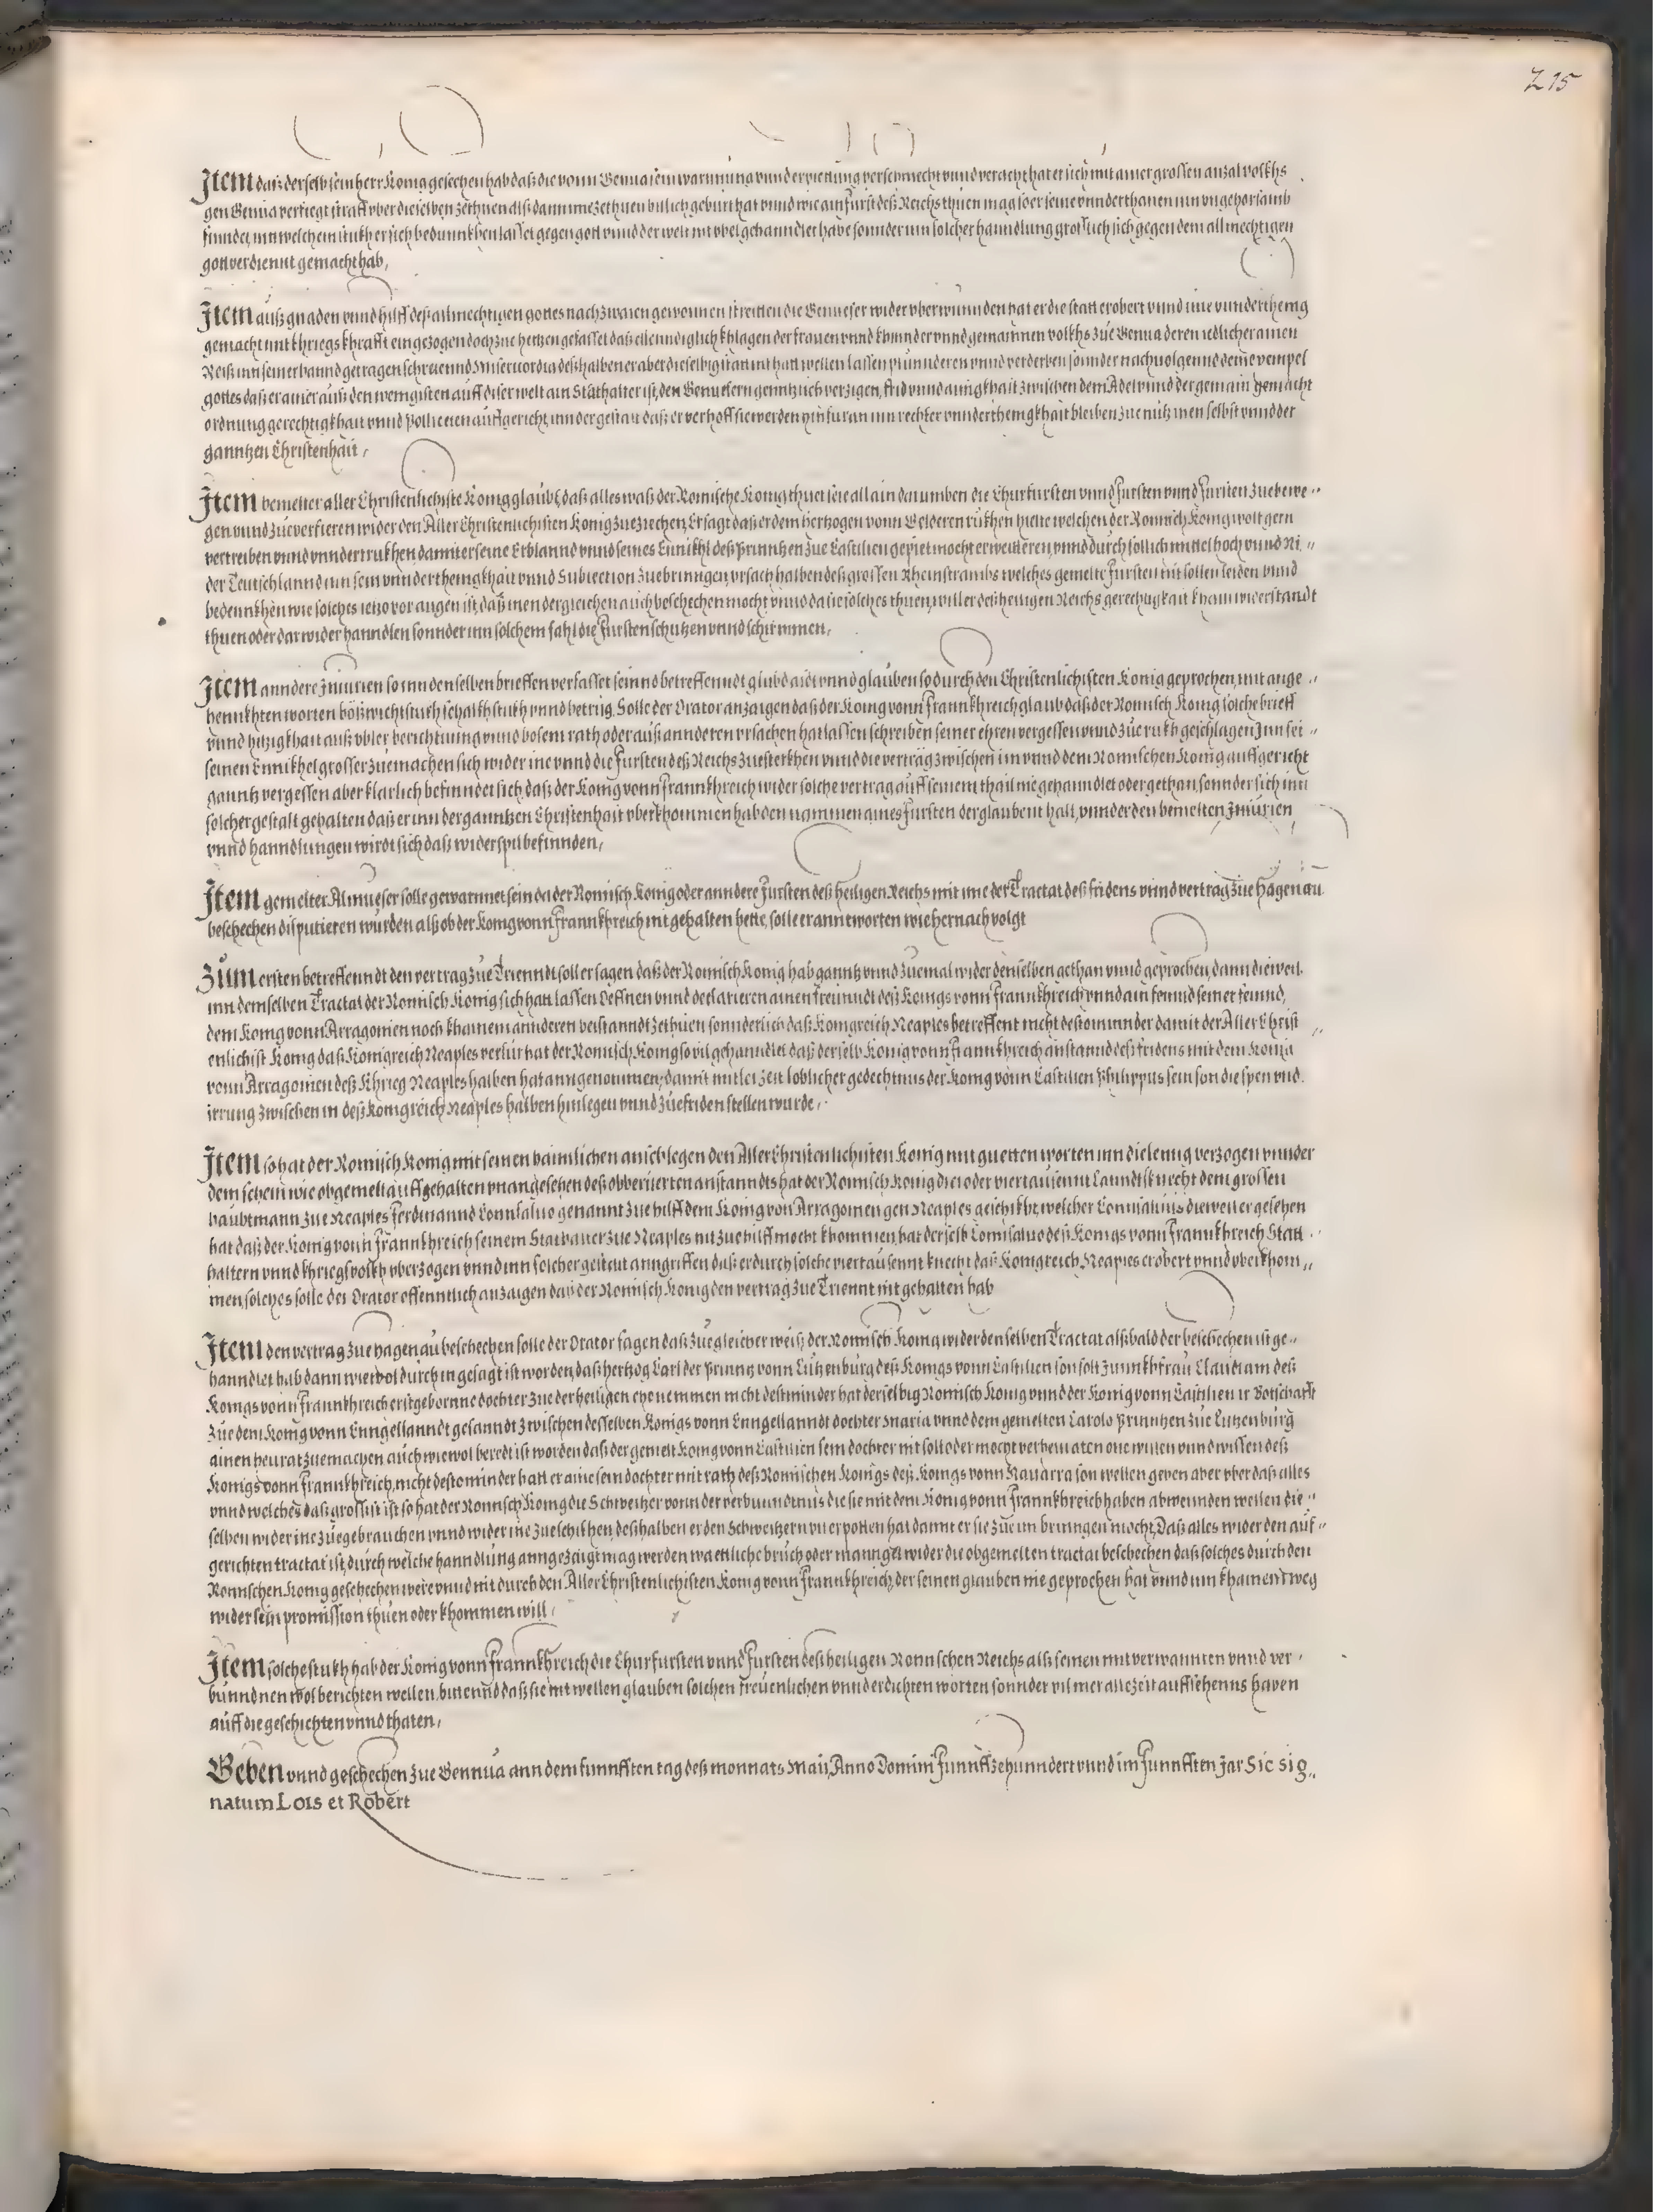 215
Item daß derselb sein herr König gesechen hab daß die vonn Genua sein warnnung vnnd erpiettung verschmecht vnnd veracht hat er sich mit ainer grossen anzal volkhs
gen Genua verfiegt straff vber dieselben zethuen alß dann ime zethuen billich geburt hat vnnd wie ain furst deß Reichs thuen mag so er seine vnnderthanen inn vngehorsamb
finndet, inn welchem stukh er sich bedunnkhen lasset gegen gott vnnd der welt nit vbel gehanndlet habe sonnder inn solcher hanndlung groslich sich gegen dem allmechtigen
gott verdiennt gemacht hab,
Item auß gnaden vnnd hilff deß allmechtigen gottes nach zwaien gewonnen streitten die Genueser wider vberwunnden hat er die statt erobert vnnd ime vnnderthenig
gemacht mit khriegs khrafft eingezogen doch zue hertzen gefasset daß ellenndiglich khlagen der frauen vnnd khinder vnnd gemainnen volkhs zue Genua deren iedlicher ainen
Reiß inn seiner hannd getragen schreiennd Misericordia deßhalben er aber dieselbig statt nit hatt wellen lassen plunnderen vnnd verderben sonnder nachuolgennd deme exempel
gottes daß er ainer auß den wenigisten auff diser welt ain Statthalter ist, den Genuesern genntzlich verzigen, frid vnnd ainigkhait zwischen dem Adel vnnd der gemain gemacht
ordnung gerechtigkhait vnnd Polliceien auffgericht, inn der gestalt daß er verhofft sie werden hinfuran inn rechter vnnderthenigkhait bleiben zue nutz inen selbst vnnd der
ganntzen Christenhait,
Item bemelter aller Christenlichiste König glaubt, daß alles waß der Romische König thuet seie allain darumben die Churfursten vnnd fursten vnnd fursten zue bewe-
gen vnnd zue verfieren wider den Aller Christenlichisten König zueziechen, Er sagt daß er dem hertzogen vonn Gelderen rükhen hielte welchen der Romisch König wolt gern
vertreiben vnnd vnndertrukhen damit er seine Erblannd vnnd seines Ennikhl deß Prinntzen zue Castilien gepiet mocht erweitteren, vnnd durch sollich mittel hoch vnnd Ni-
der Teutschlannd inn sein vnnderthenigkhait vnnd Subiection zuebringen, vrsach halben deß grossen Rheinstrambs welches gemelte fursten nit sollen leiden vnnd
bedennkhen wie solches ietzo vor augen ist, daß inen dergleichen auch beschechen mocht vnnd da sie solches thuen, will er deß heiligen Reichs gerechtigkait khain widerstandt
thuen oder darwider hanndlen sonnder inn solchem fahl die fursten schutzen vnnd schirmmen,
Item anndere Iniurien so inn denselben brieffen verfasset seinnd betreffenndt glubd aidt vnnd glauben so durch den Christenlichisten König geprochen, mit ange-
hennkhten worten bößwichtstukh schalkhstukh vnnd betrüg. Solle der Orator anzaigen daß der König vonn Frannkhreich glaub daß der Romisch König solche brieff
vnnd hitzigkhait auß vbler berichtnung vnnd bosem rath oder auß annderen vrsachen hat lassen schreiben seiner ehren vergessen vnnd zue rukh geschlagen Inn sei-
seinen Ennikhel grosser zuemachen sich wider ine vnnd die fursten deß Reichs zuesterkhen vnnd die verträg zwischen im vnnd dem Romischen König auffgericht
ganntz vergessen aber klarlich befinndet sich, daß der König vonn Frannkhreich wider solche vertrag auff seinem thail nie gehanndlet oder gethan, sonnder sich inn
solcher gestalt gehalten daß er inn der ganntzen Christenhait vberkhommen hab den nammen aines fursten der glaubenn halt, vnnder den bemelten Iniurien
vnnd hanndlungen wirdt sich daß widerspil befinnden,
Item gemelter Almueser solle gewarnnet sein da der Romisch König oder anndere fursten deß heiligen Reichs mit ime der Tractat deß fridens vnnd vertrag zue Hagenau
beschechen disputieren wurden alß ob der König vonn Frannkhreich nit gehalten hette, solle er anntworten wie hernach volgt
Zum ersten betreffenndt den vertrag zue Trienndt soll er sagen daß der Romisch König hab ganntz vnnd zuemal wider denselben gethan vnnd geprochen, dann dieweil
inn demselben Tractat der Romisch König sich hatt lassen Oeffnen vnnd declarieren ainen freunndt deß Königs vonn Frannkhreich vnnd ain feinnd seiner feinnd,
dem König vonn Arragonien noch khainem annderen beistanndt zethuen sonnderlich daß Königreich Neaples betreffent nicht destominder damit der Aller Christ-
enlichist König daß Königreich Neaples verlur hat der Romisch König so vil gehanndlet daß derselb König vonn Frannkhreich anstannd deß fridens mit dem König
vonn Arragonien deß Khrieg Neaples halben hat anngenommen, damit mitler zeit loblicher gedechtnus der König vonn Castilien Philippus sein son die spen vnd
irrung zwischen in deß Königreich Neaples halben hinlegen vnnd zuefriden stellen wurde,
Item so hat der Romisch König mit seinen haimlichen anschlegen den Aller Christenlichisten König mit guetten worten inn die lenng verzogen vnnder
dem schein wie obgemelt auffgehalten vnangesehen deß obberierten anstanndts hat der Romisch König drei oder viertausennt Lanndtsknecht dem grossen
haubtmann zue Neaples Ferdinannd Connsaluo genannt zue hilff dem König von Arragonien gen Neaples geschikht, welcher Connsaluus dieweil er gesehen
hat daß der König vonn Frannkhreich seinem Stathalter zue Neaples nit zue hilff mocht khommen, hat derselb Connsaluo deß Königs vonn Frannkhreich Statt-
haltern vnnd khriegsvolkh vberzogen vnnd inn solcher gestalt anngriffen daß er durch solche viertausennt knecht daß Königreich Neaples erobert vnnd vberkhom-
men, solches solle der Orator offenntlich anzaigen daß der Romisch König den vertrag zue Triennt nit gehalten hab
Item den vertrag zue Hagenau beschechen solle der Orator sagen daß zue gleicher weiß der Romisch König wider denselben Tractat alßbald der beschechen ist ge-
hanndlet hab dann wiewol durch in gesagt ist worden, daß hertzog Carl der Prinntz vonn Lützenburg deß Königs vonn Castilien son solt Junnkhfrau Claudiam deß
Königs vonn Frannkhreich erstgebornne dochter zue der heiligen ehe nemmen nicht destminder hat derselbig Romisch König vnnd der König vonn Castilien ir Botschafft
zue dem König vonn Enngellanndt gesanndt zwischen desselben Königs vonn Enngellanndt dochter Maria vnnd dem gemelten Carolo Prinntzen zue Lutzenburg
ainen heurat zuemachen auch wiewol beredt ist worden daß der gemelt König vonn Castilien sein dochter nit solle oder mocht verheuraten one willen vnnd wissen deß
Königs vonn Frannkhreich, nicht destominder hatt er aine sein dochter mit rath deß Romischen Königs deß Königs vonn Nauarra son wellen geben aber vber daß alles
vnnd welches daß grossist ist so hat der Romisch König die Schweitzer vonn der verbunndtnus die sie mit dem König vonn Frannkhreich haben abwennden wellen die-
selben wider ine zuegebrauchen vnnd wider ine zueschikhen, deßhalben er den Schweitzern vil erpotten hat damit er sie zue im bringen mocht, Daß alles wider den auf-
gerichten tractat ist, durch welche hanndlung anngezaigt mag werden waettliche bruch oder manngel wider die obgemelten tractat beschechen daß solches durch den
Romischen König geschechen were vnnd nit durch den Aller Christenlichisten König vonn Frannkhreich, der seinen glauben nie geprochen hat vnnd inn khainen weg
wider sein promission thuen oder khommen will,
Item solche stukh hab der König vonn Frannkhreich die Churfursten vnnd fursten deß heiligen Romischen Reichs alß seinen mitverwannten vnnd ver-
bunndnen wol berichten wellen, bittennd daß sie nit wellen glauben solchen freuenlichen vnnd erdichten worten sonnder vil mer allezeit auffsehenns haben
auff die geschichten vnnd thaten,
Geben vnnd geschechen zue Gennua ann dem funnfften tag deß monnats Maii, Anno Domini funnffzehunndert vnnd im funnfften Jar Sic sig-
natum Lois et Robert